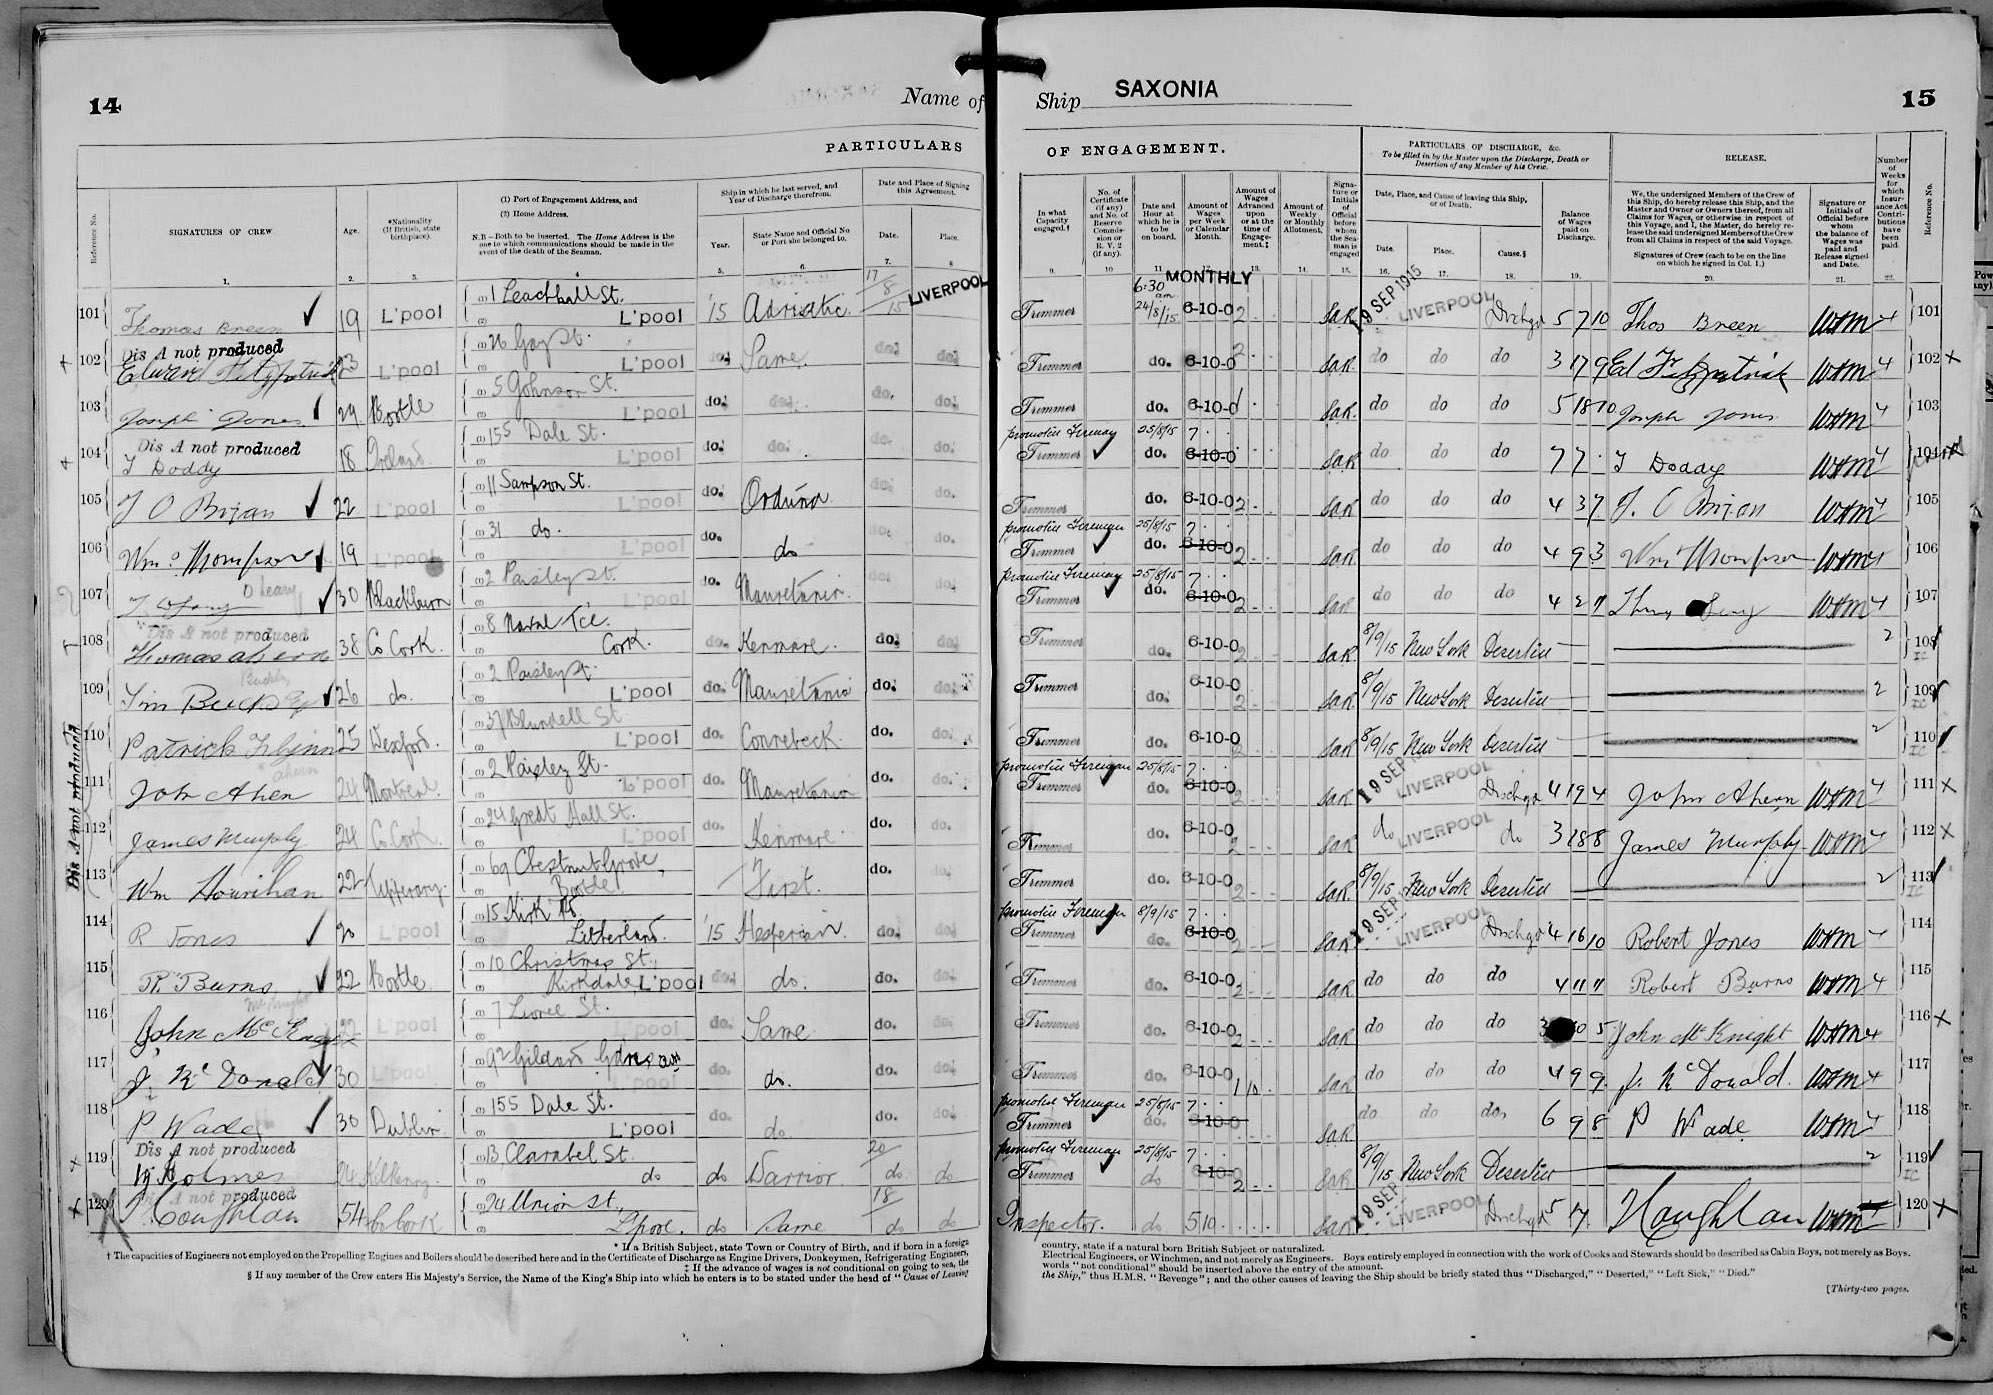 14
Name of Ship SAXONIA
15
PARTICULARS OF ENGAGEMENT.
PARTICULARS OF DISCHARGE, &c.
To be filled in by the Master upon the Discharge, Death or Desertion of any Member of his Crew.
RELEASE.
Reference No.
SIGNATURES OF CREW
Age.
*Nationality (If British, state birthplace).
(1) Port of Engagement Address, and
(2) Home Address.
N.B—Both to be inserted. The Home Address is the one to which communications should be made in the event of the death of the Seaman.
Ship in which he last served, and Year of Discharge therefrom.
Year.
State Name and Official No or Port she belonged to.
Date and Place of Signing this Agreement.
Date.
Place.
In what Capacity engaged.†
No. of Certificate (if any) and No. of Reserve Commission or R. V. 2 (if any).
Date and Hour at which he is to be on board.
Amount of Wages per Week or Calendar Month.
Amount of Wages Advanced upon or at the time of Engagement.‡
Amount of Weekly or Monthly Allotment.
Signature or Initials of Official before whom the Seaman is engaged
Date, Place, and Cause of leaving this Ship, or of Death.
Date.
Place.
Cause.§
Balance of Wages paid on Discharge.
We, the undersigned Members of the Crew of this Ship, do hereby release this Ship, and the Master and Owner or Owners thereof, from all Claims for Wages, or otherwise in respect of this Voyage, and I, the Master, do hereby release the said undersigned Members of the Crew from all Claims in respect of the said Voyage.
Signatures of Crew (each to be on the line on which he signed in Col. 1.)
Signature or Initials of Official before whom the balance of Wages was paid and Release signed and Date.
Number of Weeks for which Insurance Act Contributions have been paid.
Reference No.
MONTHLY
101 Thomas Breen 19 L'pool 1 Leadhall St. L'pool '15 Adriatic 17/8/15 LIVERPOOL Trimmer 6:30 am 24/8/15 6-10-0 2 SaR 19 SEP 1915 LIVERPOOL Dischgd 5 7 10 Thos Breen WHM 4 101
Dis A not produced
102 Edward Fitzpatrick 23 L'pool 26 Gay St. L'pool do. Same do. do. Trimmer do. 6-10-0 2 SaR do do do 3 17 9 Ed Fitzpatrick WHM 4 102 x
103 Joseph Jones 29 Bootle 5 Johnson St. L'pool do. do. do. do. Trimmer do. 6-10-0 1 SaR do do do 5 18 10 Joseph Jones WHM 4 103
Dis A not produced
promoted Fireman 25/8/15 7
104 T Doddy 18 Ireland 155 Dale St. L'pool do. do. do. do. Trimmer do. 6-10-0 SaR do do do 7 7 T Doddy WHM 4 104
105 T O Brian 22 L'pool 11 Sampson St. L'pool do. Orduna do. do. Trimmer do. 6-10-0 2 SaR do do do 4 3 7 T. O Brian WHM 4 105
promoted Fireman 25/8/15 7
106 Wm Thompson 19 L'pool 31 do. L'pool do. do do. do. Trimmer do. 6-10-0 2 SaR do do do 4 9 3 Wm Thompson WHM 4 106
promoted Fireman 25/8/15 7
107 O Leary 30 Blackburn 2 Paisley St. L'pool do. Mauretania do. do. Trimmer do. 6-10-0 2 SaR do do do 4 2 11 WHM 4 107
Dis A not produced
108 Thomas Ahern 38 Co Cork. 8 Naval Tce. Cork. do. Kenmare. do. do. Trimmer do. 6-10-0 2 SaR 8/9/15 New York Deserted 2 108 IC
109 Tim Buckley 26 do. 2 Paisley St L'pool do. Mauretania do. do. Trimmer do. 6-10-0 2 SaR 8/9/15 New York Deserted 2 109 IC
110 Patrick Flynn 25 Wexford. 37 Blundell St. L'pool do. Connebeck. do. do. Trimmer do. 6-10-0 2 SaR 8/9/15 New York Deserted 2 110 IC
promoted Fireman 25/8/15 7
Dis A not produced
111 John Ahern 24 Montreal. 2 Paisley St. L'pool do. Mauretania do. do. Trimmer do. 6-10-0 2 SaR 19 SEP LIVERPOOL Dischgd 4 19 4 John Ahern WHM 4 111 x
112 James Murphy 24 Co. Cork. 24 Great Hall St. L'pool do. Kenmare do. do. Trimmer do. 6-10-0 2 SaR do LIVERPOOL do 3 18 8 James Murphy WHM 4 112 x
113 Wm Hourihan 22 Tipperary. 69 Chestnut Grove, Bootle First. do. Trimmer do. 6-10-0 2 SaR 8/9/15 New York Deserted 2 113 IC
promoted Fireman 8/9/15 7
114 R Jones 20 L'pool 15 Kirk Rd Litherland. '15 Hesperian. do. do. Trimmer do. 6-10-0 2 SaR 19 SEP LIVERPOOL Dischgd 4 16 10 Robert Jones WHM 4 114
115 R. Burns 22 Bootle 10 Christmas St, Kirkdale, L'pool do. do. do. do. Trimmer do. 6-10-0 2 SaR do do do 4 11 11 Robert Burns WHM 4 115
116 John McKnight 22 L'pool 7 Lionel St. L'pool do. Same do. do. Trimmer do. 6-10-0 2 SaR do do do 3 10 5 John McKnight WHM 4 116 x
117 J. McDonald 30 L'pool 92 Gildart Gdns L'pool do. do. do. do. Trimmer do. 6-10-0 1 10 SaR do do do 4 9 9 J. McDonald. WHM 4 117
promoted Fireman 25/8/15 7
118 P Wade 30 Dublin 155 Dale St. L'pool do. do do. do. Trimmer do. 6-10-0 SaR do do do. 6 9 8 P Wade WHM 4 118
Dis A not produced
promoted Fireman 25/8/15 7
119 Holmes 24 Kilkenny. 13, Clarabel St. do do Warrior 20/ do. do. Trimmer do 6-10-0 2 SaR 8/9/15 New York Deserted 2 119 IC
Dis A not produced
120 T. Coughlan 54 Co Cork 24 Union St., L'pool. do Same 18/ do do Inspector. do 5 10 SaR 19 SEP LIVERPOOL Dischgd 5 17 Coughlan WHM 120 x
* If a British Subject, state Town or Country of Birth, and if born in a foreign country, state if a natural born British Subject or naturalized.
† The capacities of Engineers not employed on the Propelling Engines and Boilers should be described here and in the Certificate of Discharge as Engine Drivers, Donkeymen, Refrigerating Engineers, Electrical Engineers, or Winchmen, and not merely as Engineers. Boys entirely employed in connection with the work of Cooks and Stewards should be described as Cabin Boys, not merely as Boys.
‡ If the advance of wages is not conditional on going to sea, the words "not conditional" should be inserted above the entry of the amount.
§ If any member of the Crew enters His Majesty's Service, the Name of the King's Ship into which he enters is to be stated under the head of "Cause of Leaving the Ship," thus H.M.S. "Revenge"; and the other causes of leaving the Ship should be briefly stated thus "Discharged," "Deserted," "Left Sick," "Died."
[Thirty-two pages.